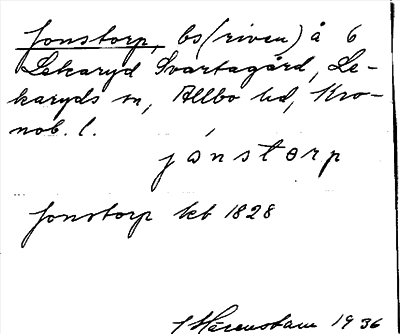 Jonstorp, bs(riven) å 6
Lekaryd Svartagård, Le-
karyds sn, Allbo hd, Kro-
nob. l.
jónstorp
Jonstorp kb 1828
J Härenstam 1936